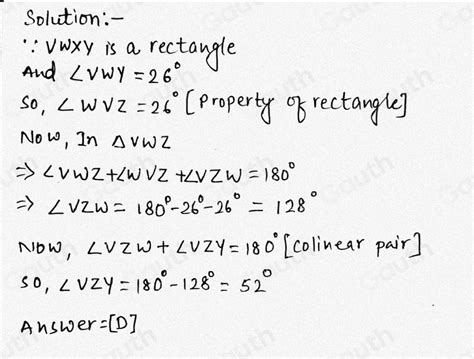 Solution:-
∵ VWXY is a rectangle
And ∠VWY = 26°
So, ∠WVZ = 26° [Property of rectangle]
Now, In △VWZ
⇒ ∠VWZ+∠WVZ+∠VZW = 180°
⇒ ∠VZW = 180°-26°-26° = 128°
Now, ∠VZW+∠VZY = 180° [colinear pair]
So, ∠VZY = 180°-128° = 52°
Answer=[D]